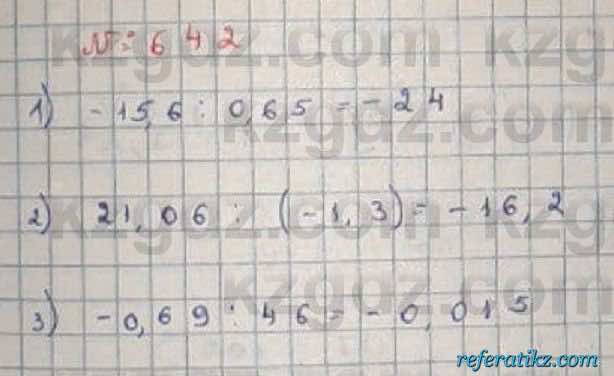 kzgdz.com kzgdz.com
№: 642
1) -15,6 : 0,65 = -24
kzgdz.com
2) 21,06 : (-1,3) = -16,2
kzgdz.com
3) -0,69 : 46 = -0,015
referatikz.com